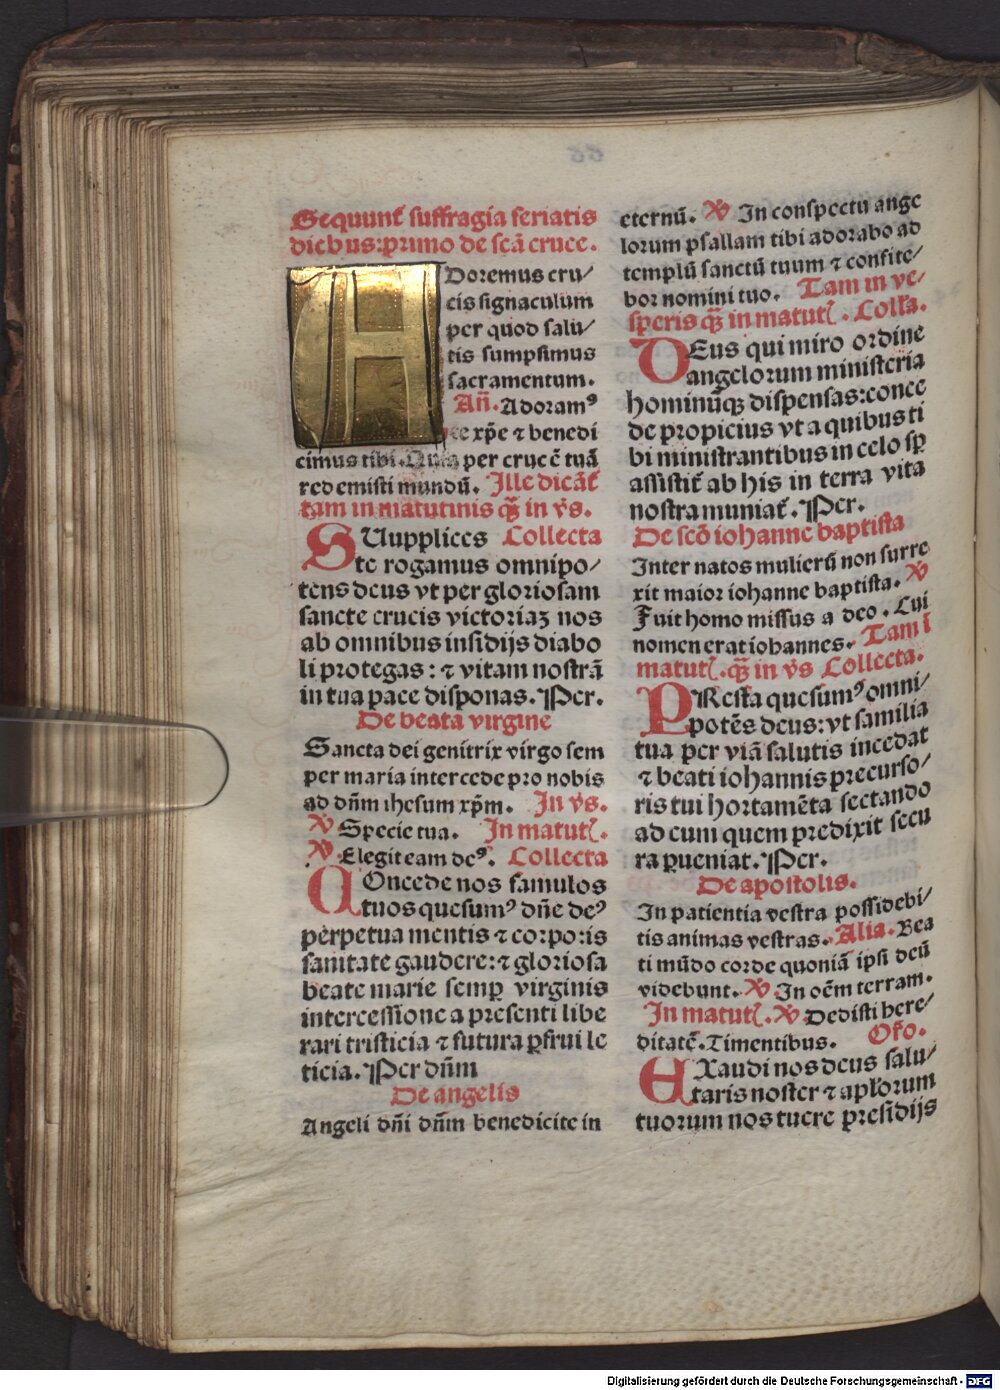 Sequunt᷑ suffragia ferialis
diebus: primo de scā cruce.
ADoremus cru/
cis signaculum
per quod salu/
tis sumpsimus
sacramentum.
An̄. Adoramꝰ
te xp̄e ⁊ benedi
cimus tibi. Quia per crucē tuā
redemisti mundū. Ille dicāt᷑
tam in matutinis ꝙ̄ in v̄s.
SUupplices Collecta
te rogamus omnipo/
tens deus vt per gloriosam
sancte crucis victoriaꝫ nos
ab omnibus insidijs diabo
li protegas: ⁊ vitam nostrā
in tua pace disponas. Per.
De beata virgine
Sancta dei genitrix virgo sem
per maria intercede pro nobis
ad dn̄m ihesum xp̄m. In v̄s.
℣ Specie tua. In matut᷑.
℣ Elegit eam deꝰ. Collecta
COncede nos famulos
tuos quesumꝰ dn̄e deꝰ
perpetua mentis ⁊ corporis
sanitate gaudere: ⁊ gloriosa
beate marie semꝑ virginis
intercessione a presenti libe
rari tristicia ⁊ futura ꝑfrui le
ticia. Per dn̄m
De angelis
Angeli dn̄i dn̄m benedicite in
eternū. ℣ In conspectu ange
lorum psallam tibi adorabo ad
templū sanctū tuum ⁊ confite/
bor nomini tuo. Tam in ve/
speris ꝙ̄ in matut᷑. Coll'a.
DEus qui miro ordine
angelorum ministeria
hominūqꝫ dispensas: conce
de propicius vt a quibus ti
bi ministrantibus in celo sꝑ
assistit᷑ ab his in terra vita
nostra muniat᷑. Per.
De scō iohanne baptista
Inter natos mulierū non surre
xit maior iohanne baptista. ℣
Fuit homo missus a deo. Cui
nomen erat iohannes. Tam ī
matut᷑. ꝙ̄ in v̄s Collecta.
PResta quesumꝰ omni/
potēs deus: vt familia
tua per viā salutis incedat
⁊ beati iohannis precurso/
ris tui hortamēta sectando
ad eum quem predixit secu
ra ꝑueniat. Per.
De apostolis.
In patientia vestra possidebi/
tis animas vestras. Alia. Bea
ti mūdo corde quoniā ipsi deū
videbunt. ℣ In oēm terram.
In matut᷑. ℣ Dedisti here/
ditatē. Timentibus. Oŕo.
EXaudi nos deus salu/
taris noster ⁊ apl'orum
tuorum nos tuere presidijs
Digitalisierung gefördert durch die Deutsche Forschungsgemeinschaft - DFG